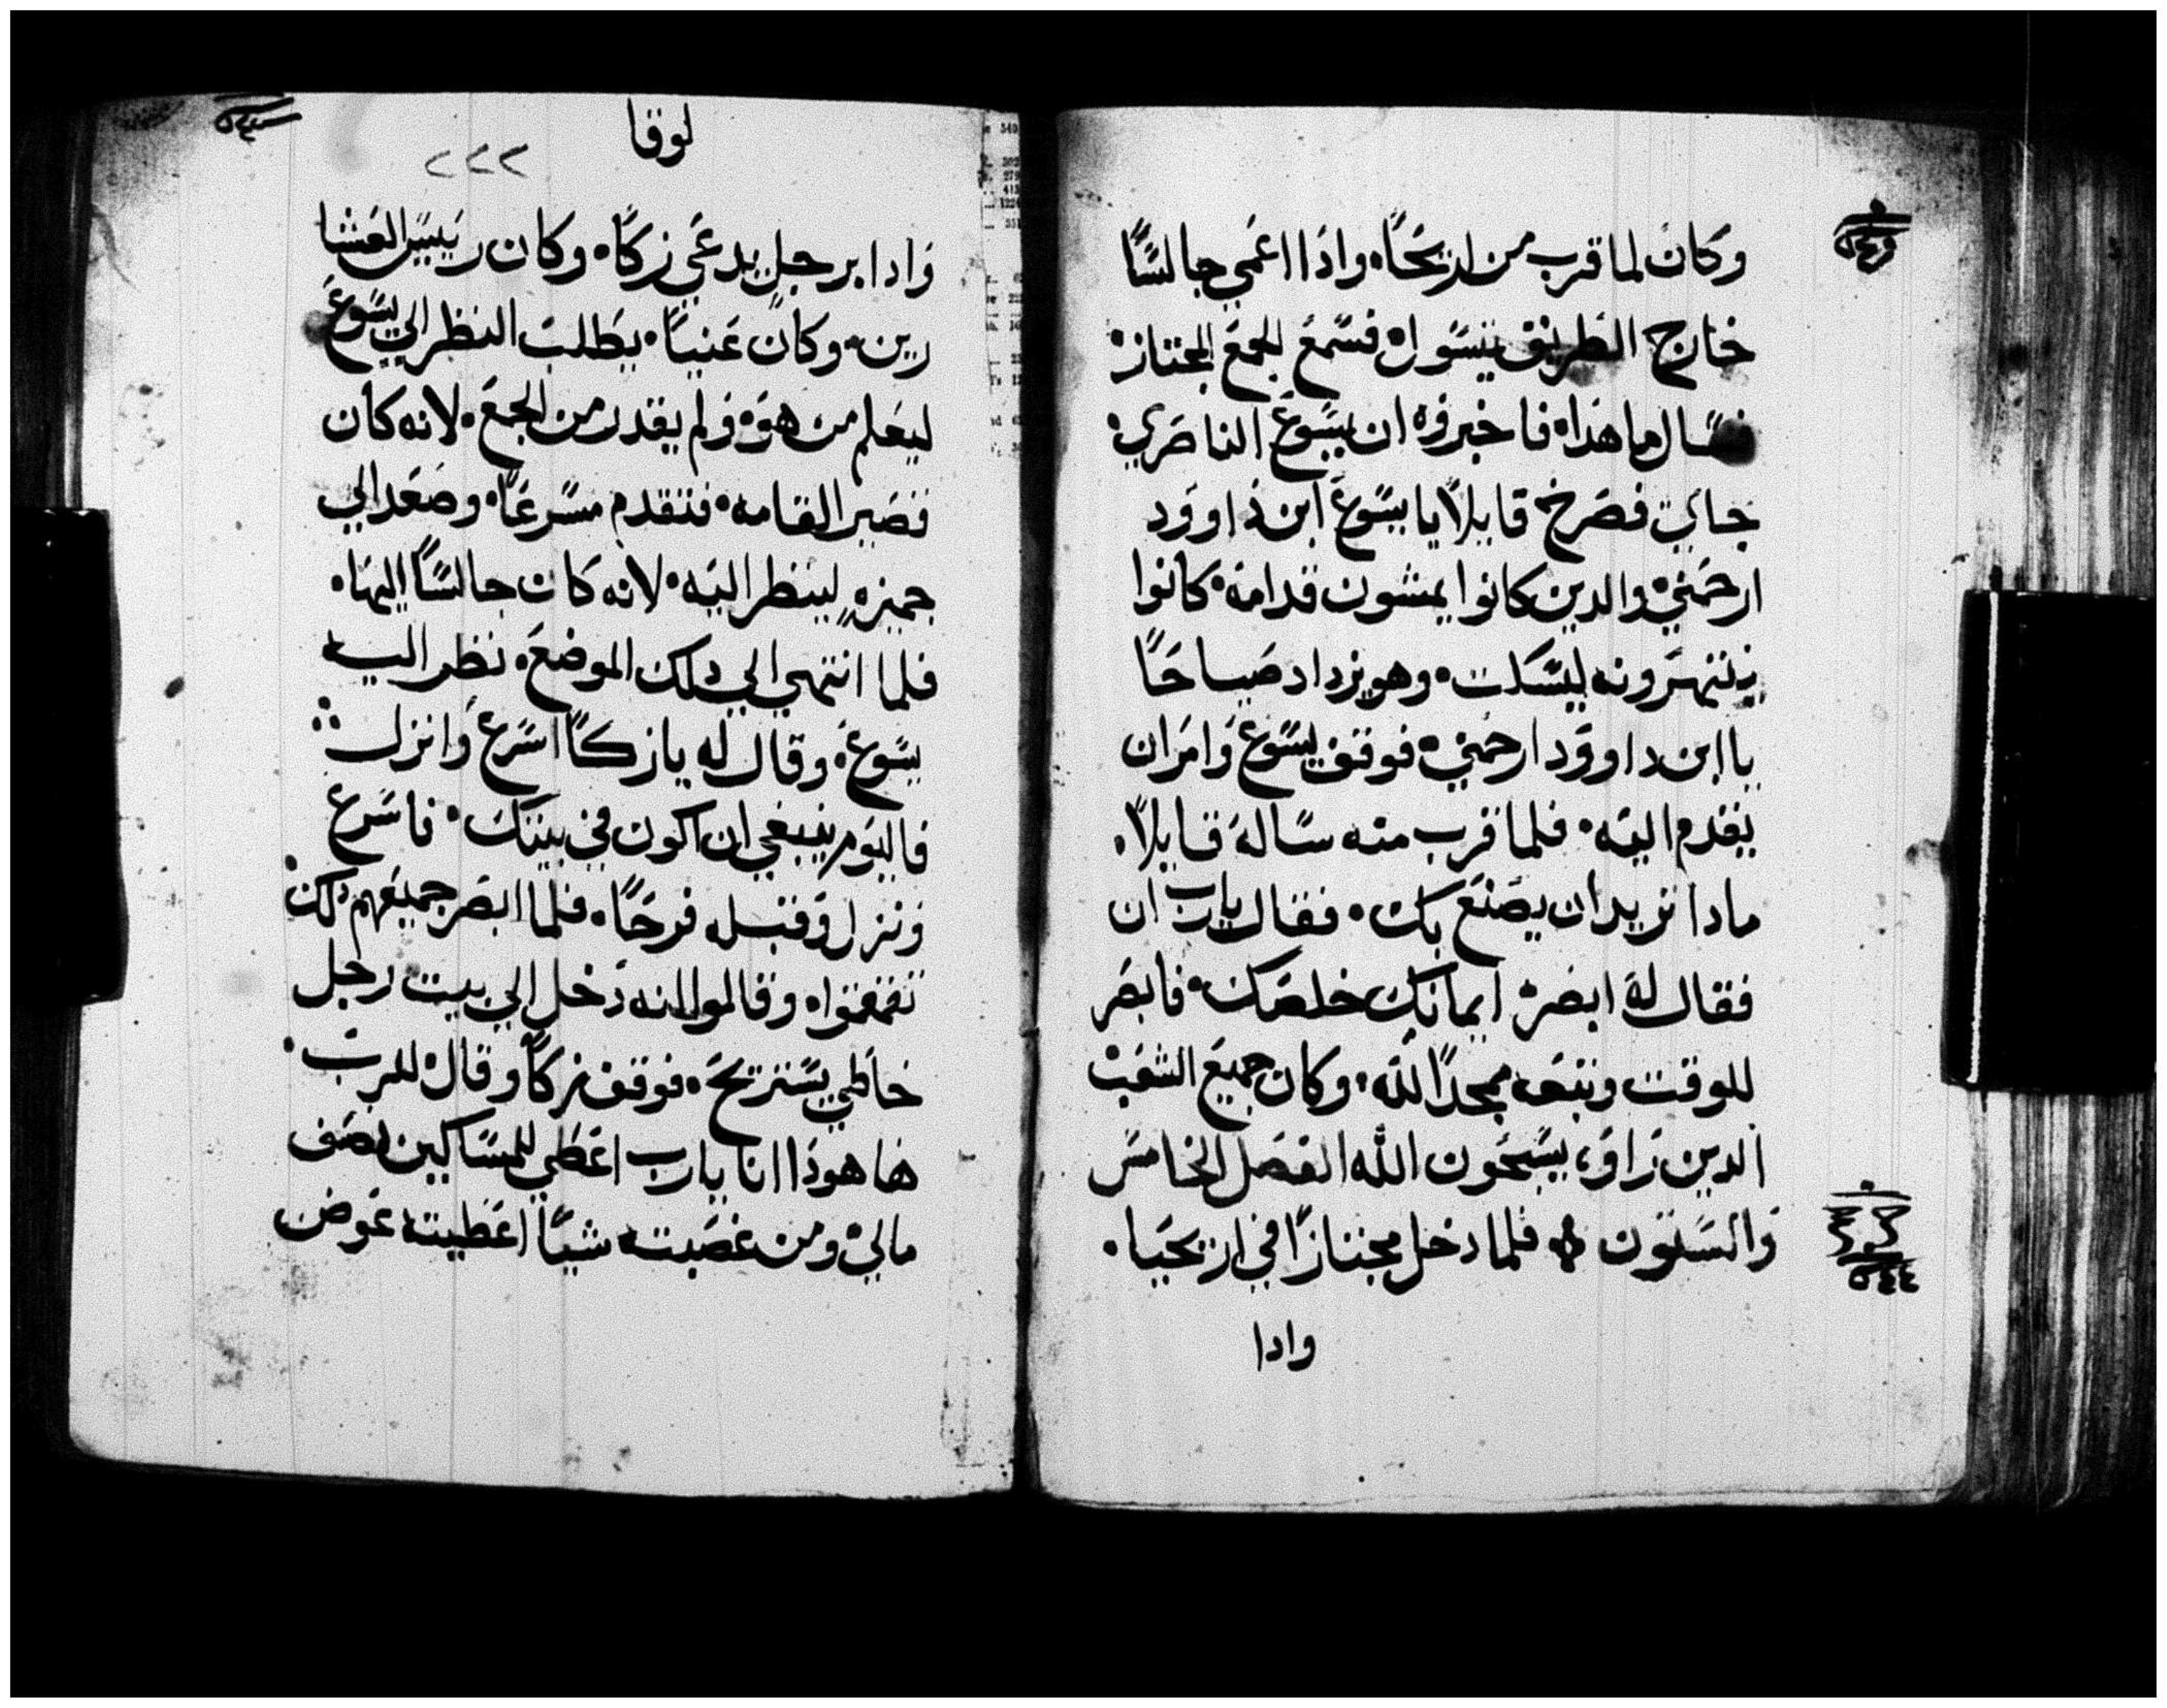 وكان لما قرب من اريحا۰ واذا اعمي جالسًا
خارج الطريق يتسول۰ فسمع الجمع المجتاز۰
فسال ما هذا۰ فاخبروه ان يسوع الناصري۰
جايي فصرخ قايلًا يا يسوع ابن داوود
ارحمني۰ والدين كانوا يمشون قدامه۰ كانوا
ينتهرونه ليسكت۰ وهو يزداد صياحًا
يا ابن داوود ارحمني۰ فوقف يسوع وامر ان
يقدم اليه۰ فلما قرب منه ساله قايلًا۰
مادا تريد ان يصنع بك۰ فقال يارب ان
فقال له ابصر۰ ايمانك خلصك۰ فابصر
للوقت وتبعه ممجدًا لله۰ وكان جميع الشعب
الدين راو، يسبحون الله الفصل الخامس
والستون ۰ فلما دخل مجتازًا في اريحيا۰
وادا
لوقا
٢٢٢
وادا برجل يدعي زكا۰ وكان رييس العشا
رين۰ وكان غنيا۰ يطلب النظر الي يسوع
ليعلم من هو۰ ولم يقدر من الجمع۰ لانه كان
قصير القامه۰ فتقدم مسرعًا۰ وصعد الي
جميزهٍ لينظر اليه۰ لانه كان جالسًا اليها۰
فلما انتهي الي دلك الموضع۰ نظر اليه
يسوع۰ وقال له يا زكا اسرع وانزل
فاليوم ينبغي ان اكون في بيتك۰ فاسرع
ونزل وقبله فرحًا۰ فلما ابصر جميعهم دلك
تقمقموا۰ وقالوا انه دخل الي بيت رجل
خاطي يستريح۰ فوقف زكا وقال للرب۰
ها هودا انا يارب اعطي للمساكين نصف
مالي۰ ومن غصبته شيًا اعطيته عوض